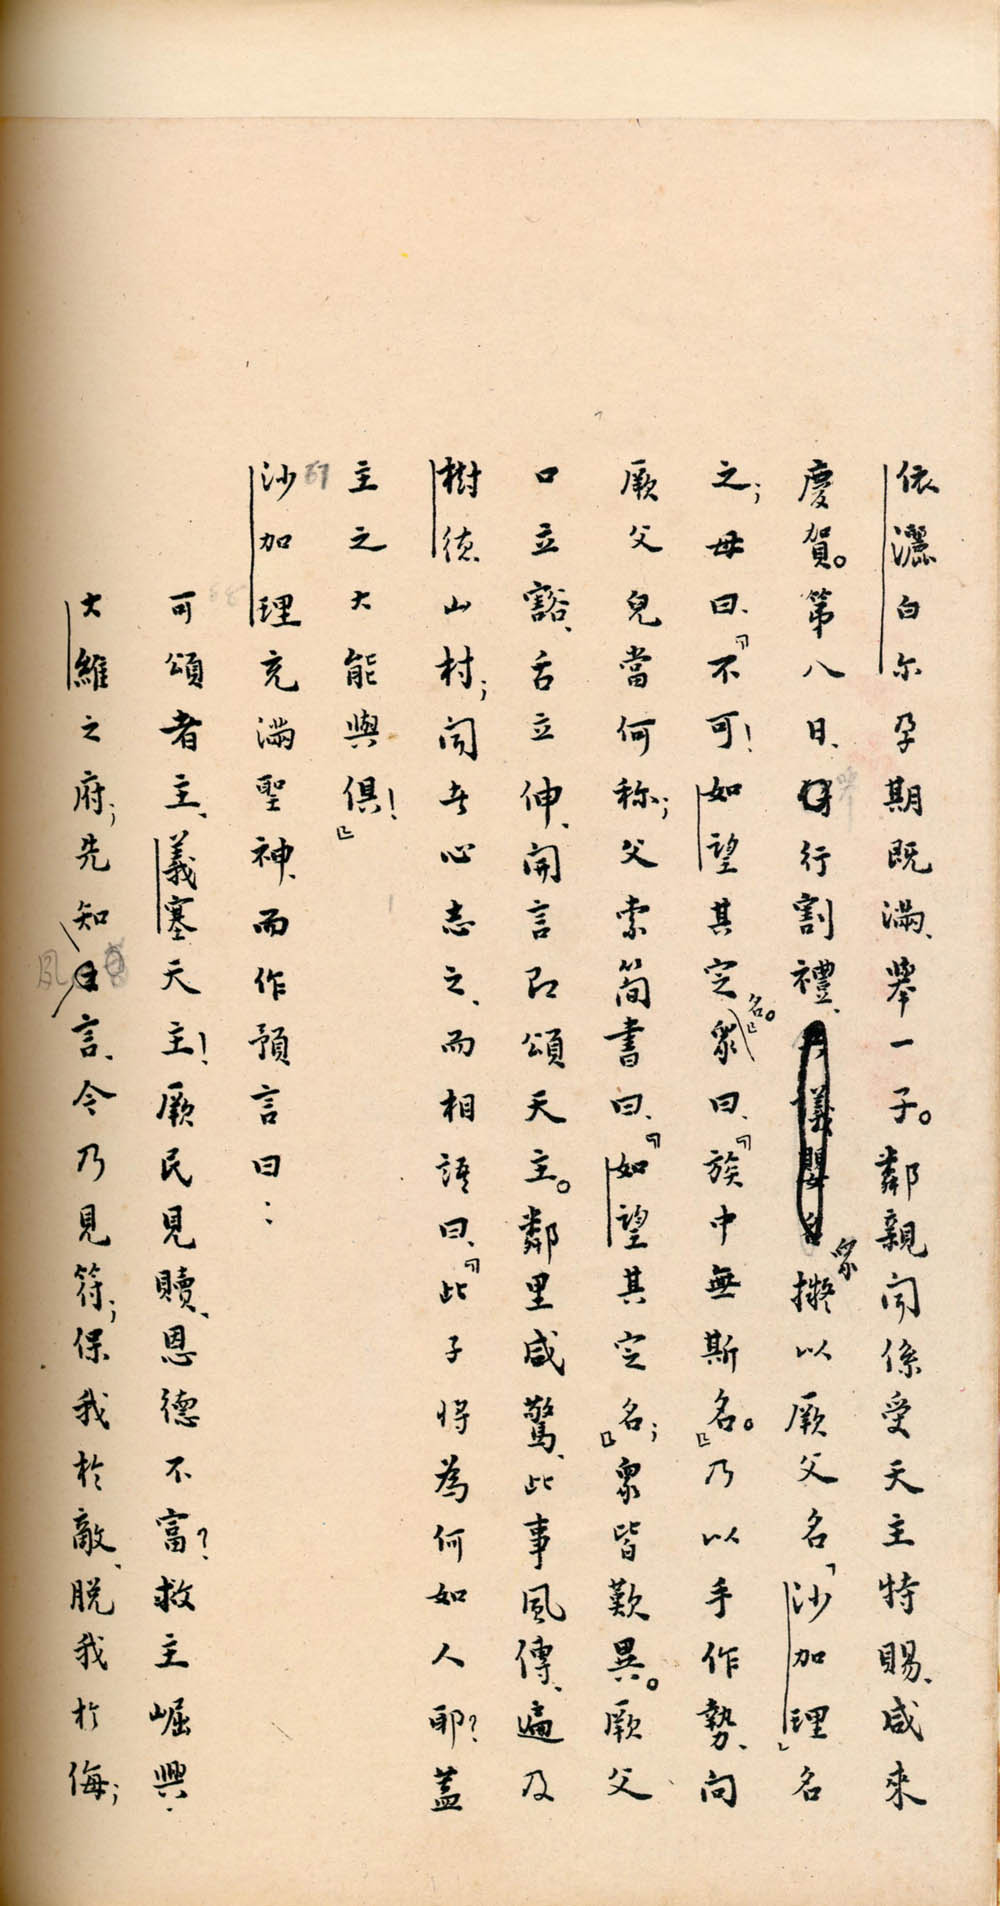 依灑白尔孕期既滿、舉一子。鄰親聞係受天主特賜、咸來
慶賀。第八日、行割禮、眾擬以厥父名「沙加理」名
之；母曰、『不可！如望其定名。』眾曰、『族中無斯名。』乃以手作勢、向
厥父兒當何称；父索簡書曰、『如望其定名；』眾皆歎異。厥父
口立豁、舌立伸、開言即頌天主。鄰里咸驚、此事風傳、遍及
樹德山村；聞者心志之、而相語曰、『此子將為何如人耶？蓋
主之大能與俱！』
67
沙加理充滿聖神、而作預言曰：
68
可頌者主、義塞天主！厥民見贖、恩德不富？救主崛興、
大維之府；先知夙言、今乃見符；保我於敵、脱我於侮；